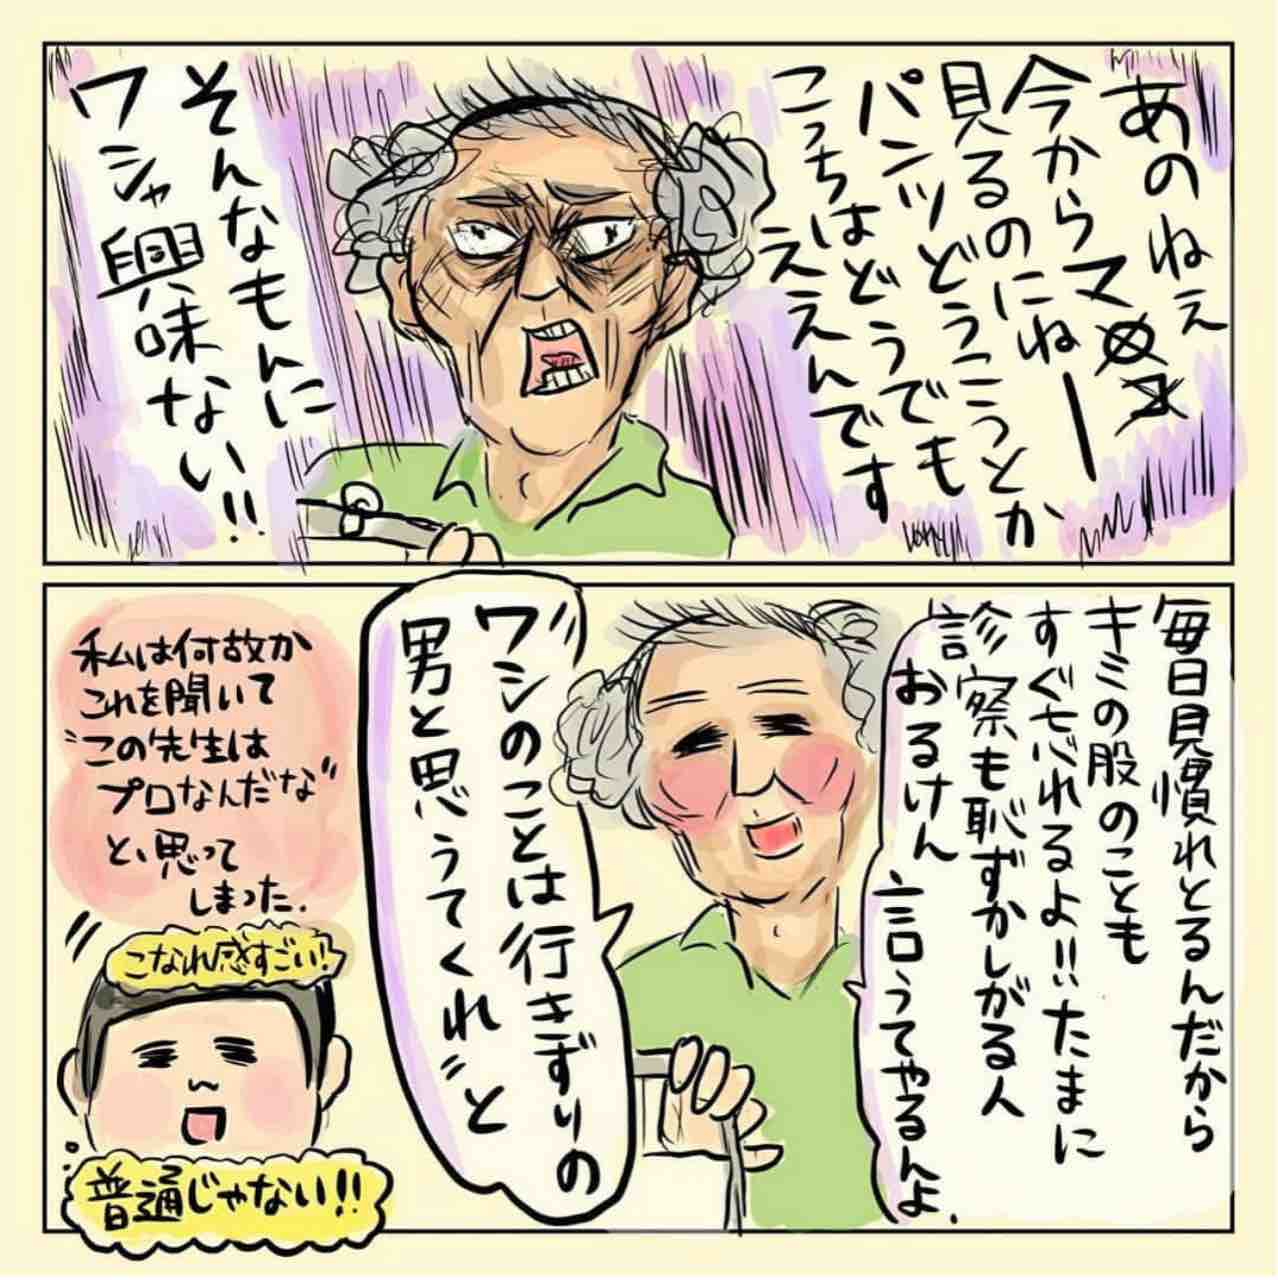 あのねぇ
今からマ
見るのにねー
パンツどうこうとか
こっちはどうでも
ええんです
そんなもんに
ワシャ興味ない!!
毎日見慣れとるんだから
キミの股のことも
すぐ忘れるよ!!たまに
診察も恥ずかしがる人
おるけん言うてやるんよ.
ワシのことは行きずりの
男と思うてくれ"と
私は何故か
これを聞いて
"この先生は
プロなんだな"
と、思って
しまった.
こなれ感すごい!
普通じゃない!!